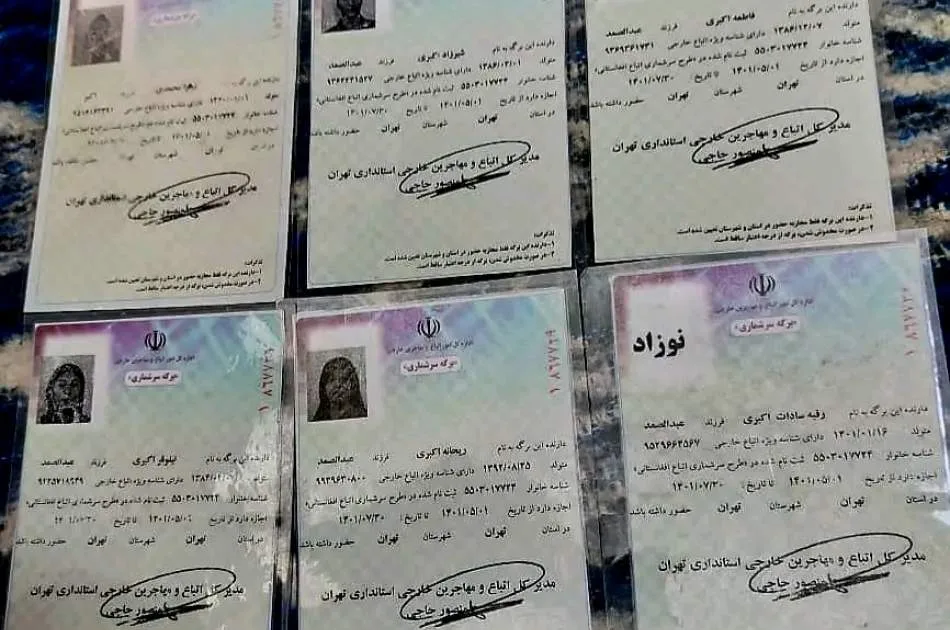 «برگه سرشماری»
دارنده این برگه به نام زهرا محمدی فرزند اکبر
دارای شناسه ویژه اتباع خارجی
مدیر کل اتباع و مهاجرین خارجی استانداری تهران
منصور حاجی
تذکرات:
۱-دارنده این برگه فقط مجازبه حضور در استان و شهرستان تعیین شده است.
۲-در صورت مخدوش شدن، برگه از درجه اعتبار ساقط است.
دارنده این برگه به نام شیرزاد اکبری فرزند عبدالصمد
متولد ۱۳۸۶/۰۲/۰۱ دارای شناسه ویژه اتباع خارجی
شناسه خانوار ۵۵۰۳۰۱۷۷۲۴ ثبت نام شده در «طرح سرشماری اتباع افغانستانی»
اجازه دارد از تاریخ ۱۴۰۱/۰۵/۰۱ تا تاریخ: ۱۴۰۱/۰۷/۳۰
در استان تهران شهرستان تهران حضور داشته باشد
مدیر کل اتباع و مهاجرین خارجی استانداری تهران
منصور حاجی
تذکرات:
۱-دارنده این برگه فقط مجازبه حضور در استان و شهرستان تعیین شده است.
۲-در صورت مخدوش شدن، برگه از درجه اعتبار ساقط است.
دارنده این برگه به نام فاطمه اکبری فرزند عبدالصمد
متولد ۱۳۸۶/۱۲/۰۷ دارای شناسه ویژه اتباع خارجی ۹۳۶۹۳۶۱۷۳۱
شناسه خانوار ۵۵۰۳۰۱۷۷۲۴ ثبت نام شده در «طرح سرشماری اتباع افغانستانی»
اجازه دارد از تاریخ ۱۴۰۱/۰۵/۰۱ تا تاریخ: ۱۴۰۱/۰۷/۳۰
در استان تهران شهرستان تهران حضور داشته باشد
مدیر کل اتباع و مهاجرین خارجی استانداری تهران
منصور حاجی
تذکرات:
۱-دارنده این برگه فقط مجازبه حضور در استان و شهرستان تعیین شده است.
۲-در صورت مخدوش شدن، برگه از درجه اعتبار ساقط است.
اداره کل امور اتباع و مهاجرین خارجی
«برگه سرشماری»
دارنده این برگه به نام نیلوفر اکبری فرزند عبدالصمد
متولد دارای شناسه ویژه اتباع خارجی ۹۲۲۵۷۱۸۵۴۹
شناسه خانوار ۵۵۰۳۰۱۷۷۲۴ ثبت نام شده در «طرح سرشماری اتباع افغانستانی»
اجازه دارد از تاریخ تا تاریخ:
در استان تهران شهرستان تهران حضور داشته باشد
مدیر کل اتباع و مهاجرین خارجی استانداری تهران
منصور حاجی
اداره کل امور اتباع و مهاجرین خارجی
«برگه سرشماری»
دارنده این برگه به نام ریحانه اکبری فرزند عبدالصمد
متولد ۱۳۹۲/۰۸/۲۵ دارای شناسه ویژه اتباع خارجی ۹۹۳۹۶۳۰۸۰۰
شناسه خانوار ۵۵۰۳۰۱۷۷۲۴ ثبت نام شده در «طرح سرشماری اتباع افغانستانی»
اجازه دارد از تاریخ ۱۴۰۱/۰۵/۰۱ تا تاریخ: ۱۴۰۱/۰۷/۳۰
در استان تهران شهرستان تهران حضور داشته باشد
مدیر کل اتباع و مهاجرین خارجی استانداری تهران
منصور حاجی
اداره کل امور اتباع و مهاجرین خارجی
«برگه سرشماری»
نوزاد
دارنده این برگه به نام رقیه سادات اکبری فرزند عبدالصمد
متولد ۱۴۰۱/۰۱/۱۶ دارای شناسه ویژه اتباع خارجی ۹۵۲۹۶۶۳۵۶۷
شناسه خانوار ۵۵۰۳۰۱۷۷۲۴ ثبت نام شده در «طرح سرشماری اتباع افغانستانی»
اجازه دارد از تاریخ ۱۴۰۱/۰۵/۰۱ تا تاریخ: ۱۴۰۱/۰۷/۳۰
در استان تهران شهرستان تهران حضور داشته باشد
مدیر کل اتباع و مهاجرین خارجی استانداری تهران
منصور حاجی